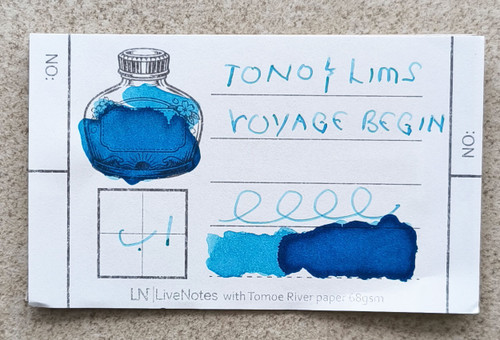 NO:
TONO & Lims
VOYAGE BEGIN
NO:
LN LiveNotes with Tomoe River paper 68gsm